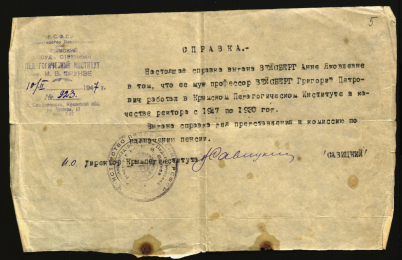 5
Р.С.Ф.С.Р.
КРЫМСКИЙ
ПЕДАГОГИЧЕСКИЙ ИНСТИТУТ
им. М. В. ФРУНЗЕ
1947 г.
№ 323
СПРАВКА.-
Настоящая справка выдана ВЕЙСБЕРГ Анне Яковлевне
в том, что ее муж профессор ВЕЙСБЕРГ Григорий Петро-
вич работал в Крымском Педагогическом Институте в ка-
честве ректора с 1927 по 1930 год.
Выдана справка для представления в комиссию по
назначению пенсии.
И.о. Директор Крымпединститута
/САВИЦКИЙ/